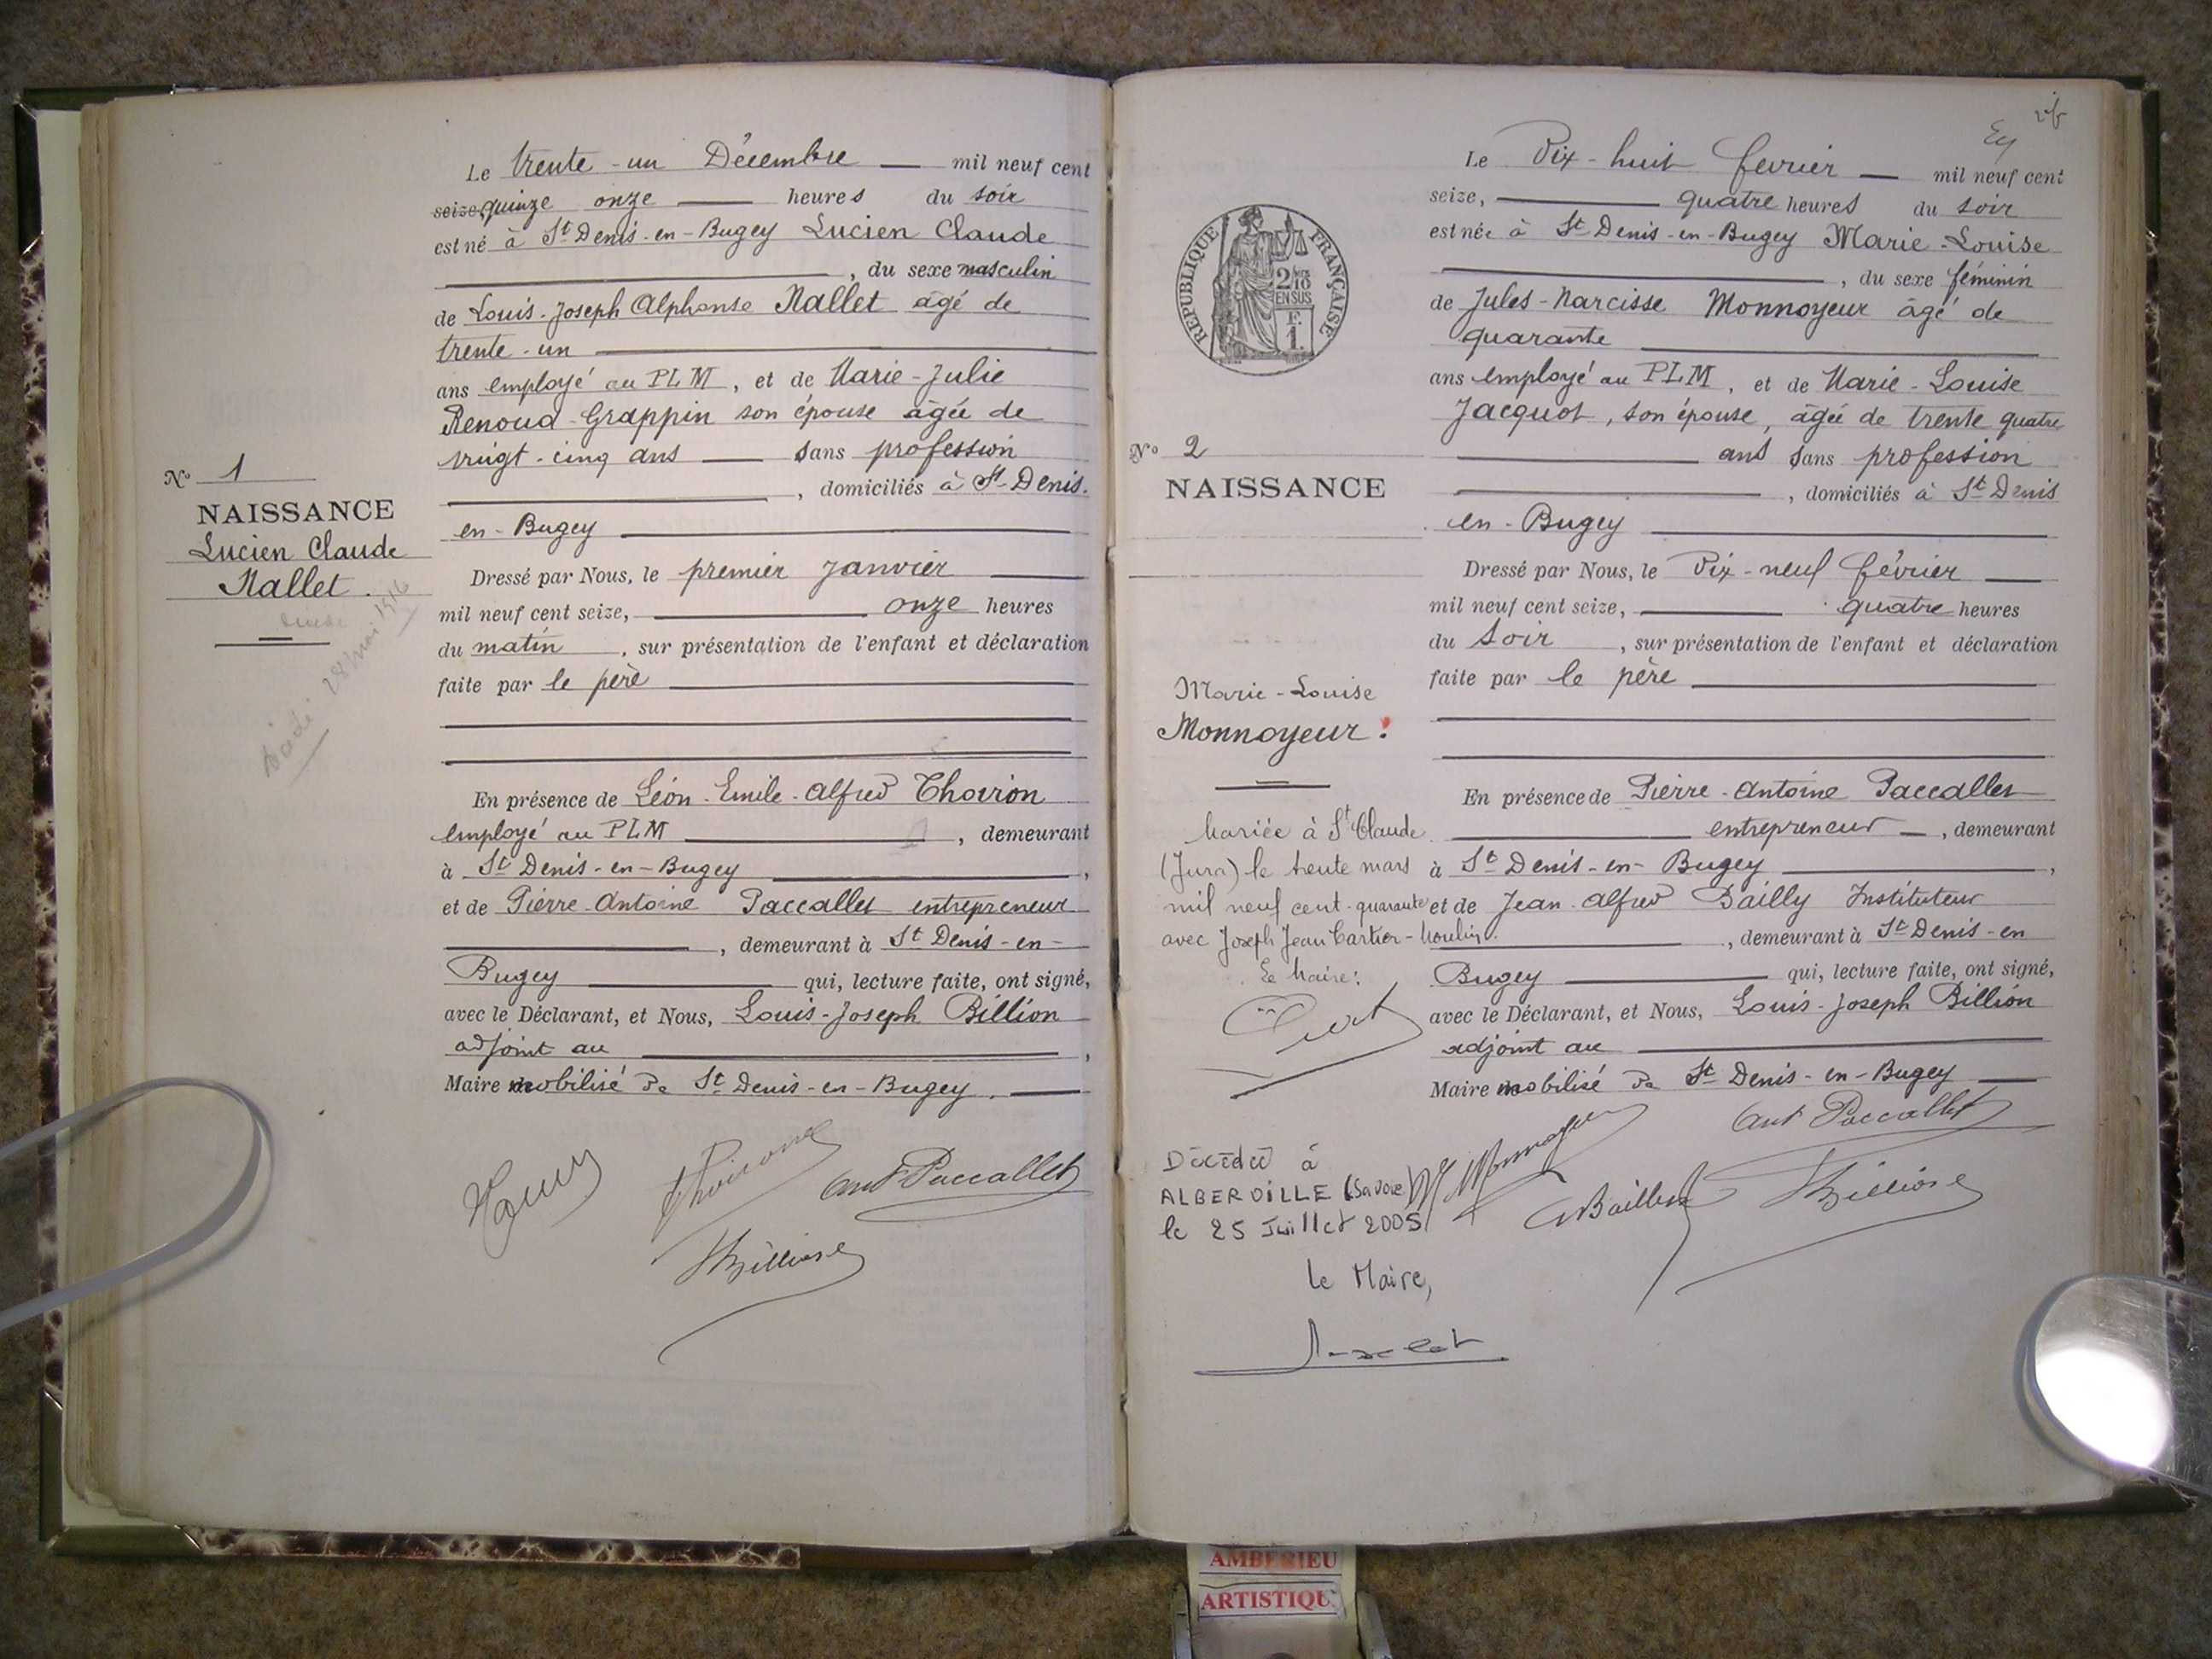 Le trente-un Décembre — mil neuf cent
seize quinze onze — heures du soir
est né à St Denis-en-Bugey Lucien Claude
, du sexe masculin
de Louis-Joseph Alphonse Nallet âgé de
trente-un
ans employé au PLM, et de Marie-Julie
Renoud-Grappin son épouse âgée de
vingt-cinq ans — sans profession
, domiciliés à St-Denis-
en-Bugey
Dressé par Nous, le premier Janvier
mil neuf cent seize, onze heures
du matin, sur présentation de l'enfant et déclaration
faite par le père
En présence de Léon-Emile-Alfred Thoiron
employé au PLM, demeurant
à St Denis-en-Bugey,
et de Pierre-Antoine Paccallet entrepreneur
, demeurant à St Denis-en-
Bugey qui, lecture faite, ont signé,
avec le Déclarant, et Nous, Louis-Joseph Billion
adjoint au,
Maire mobilisé de St Denis-en-Bugey.
No 1
NAISSANCE
Lucien Claude
Nallet.
28 mai 1916
Thoiron
Ant Paccallet
Billion
Ey
Le Dix-huit février — mil neuf cent
seize, quatre heures du soir
est née à St Denis-en-Bugey Marie-Louise
, du sexe féminin
de Jules-Narcisse Monnoyeur âgé de
quarante
ans employé au PLM, et de Marie-Louise
Jacquot, son épouse, âgée de trente quatre
ans sans profession
, domiciliés à St Denis
en-Bugey
Dressé par Nous, le Dix-neuf février
mil neuf cent seize, quatre heures
du soir, sur présentation de l'enfant et déclaration
faite par le père
En présence de Pierre-Antoine Paccallet
entrepreneur, demeurant
à St Denis-en-Bugey,
et de Jean-Alfred Bailly Instituteur
, demeurant à St Denis-en
Bugey qui, lecture faite, ont signé,
avec le Déclarant, et Nous, Louis-Joseph Billion
adjoint au
Maire mobilisé de St Denis-en-Bugey
REPUBLIQUE FRANÇAISE
2/10
EN SUS
F.
1.
No 2
NAISSANCE
Marie-Louise
Monnoyeur.
Mariée à St Claude
(Jura) le trente mars
mil neuf cent quarante
avec Joseph Jean Cartier-Moulin.
Le Maire:
Décédée à
ALBERVILLE (Savoie)
le 25 Juillet 2005
Le Maire,
Monnoyeur
Ant Paccallet
Bailly
Billion
AMBERIEU
ARTISTIQU